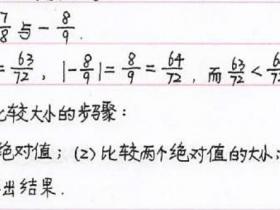 7/8 与 -8/9.
= 63/72, |-8/9| = 8/9 = 64/72, 而 63/72 <
比较大小的步骤:
绝对值; (2) 比较两个绝对值的大小;
出结果.